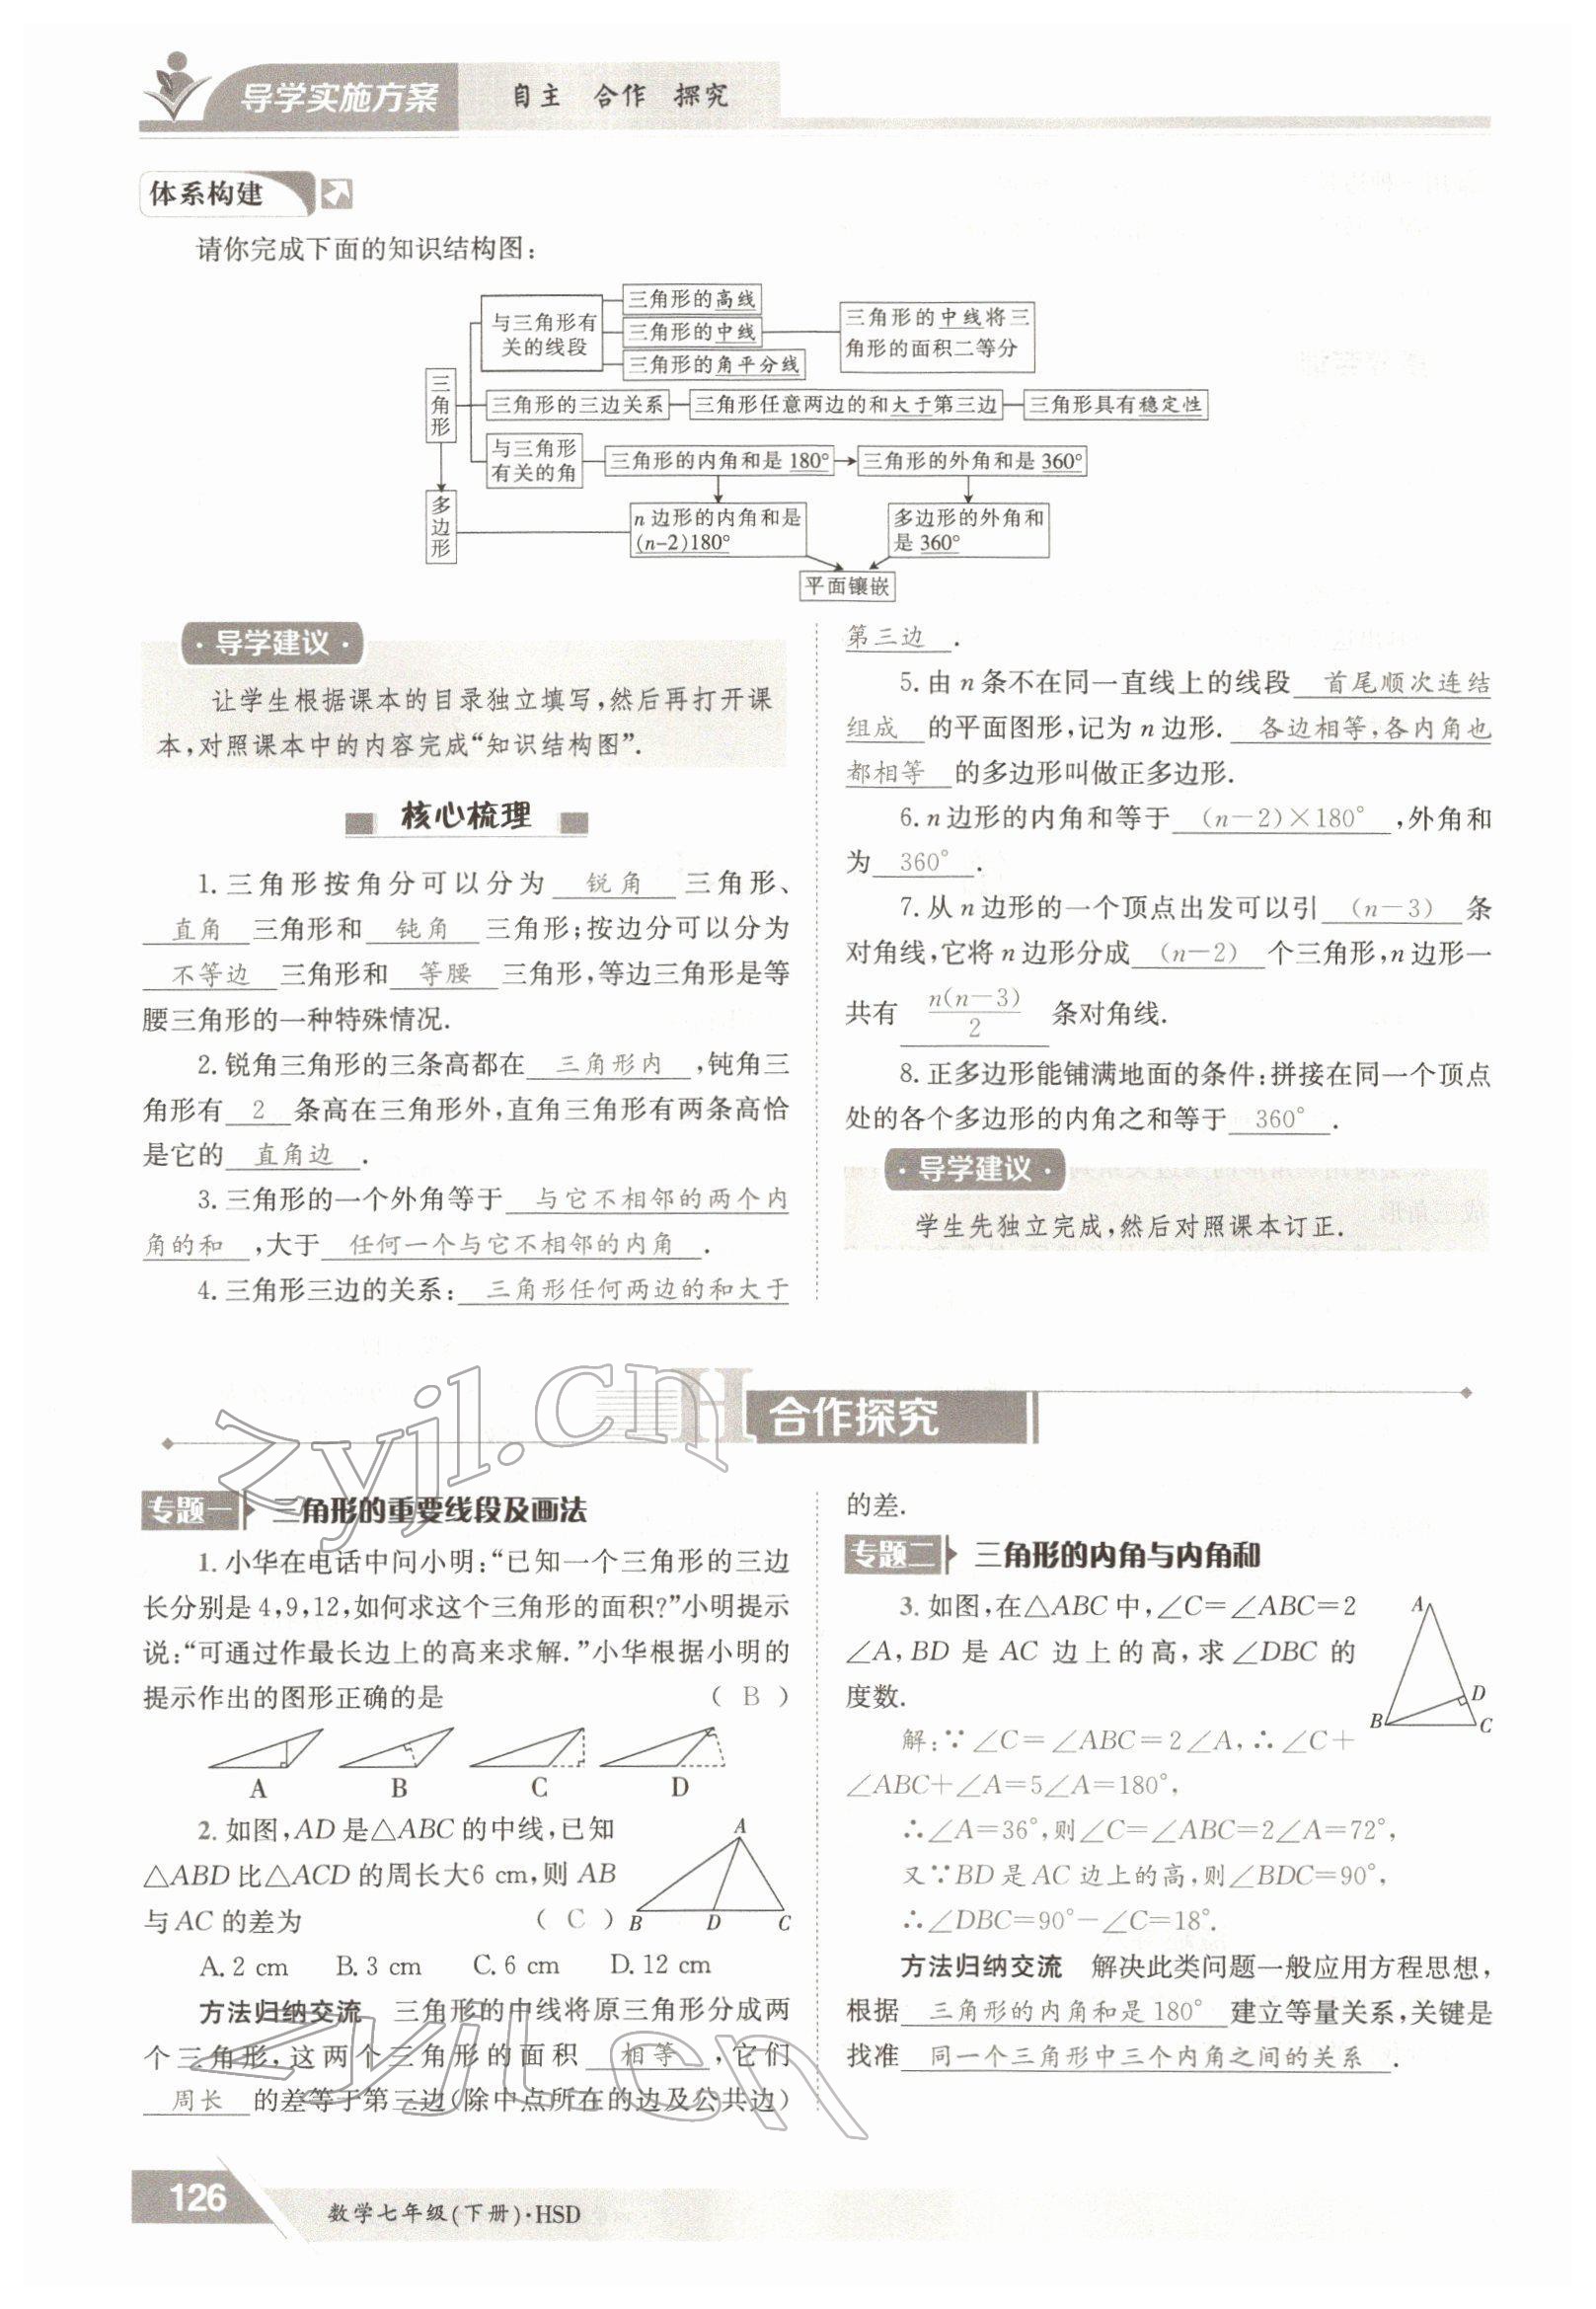 导学实施方案 自主 合作 探究
体系构建
请你完成下面的知识结构图:
三角形
与三角形有关的线段
三角形的高线
三角形的中线
三角形的角平分线
三角形的中线将三角形的面积二等分
三角形的三边关系
三角形任意两边的和大于第三边
三角形具有稳定性
与三角形有关的角
三角形的内角和是 180°
三角形的外角和是 360°
多边形
n 边形的内角和是(n-2)180°
多边形的外角和是 360°
平面镶嵌
·导学建议·
让学生根据课本的目录独立填写,然后再打开课
本,对照课本中的内容完成“知识结构图”.
核心梳理
1. 三角形按角分可以分为 锐角 三角形、
直角 三角形和 钝角 三角形;按边分可以分为
不等边 三角形和 等腰 三角形,等边三角形是等
腰三角形的一种特殊情况.
2. 锐角三角形的三条高都在 三角形内 ,钝角三
角形有 2 条高在三角形外,直角三角形有两条高恰
是它的 直角边 .
3. 三角形的一个外角等于 与它不相邻的两个内
角的和 ,大于 任何一个与它不相邻的内角 .
4. 三角形三边的关系: 三角形任何两边的和大于
第三边 .
5. 由 n 条不在同一直线上的线段 首尾顺次连结
组成 的平面图形,记为 n 边形. 各边相等,各内角也
都相等 的多边形叫做正多边形.
6. n 边形的内角和等于 (n-2)×180° ,外角和
为 360° .
7. 从 n 边形的一个顶点出发可以引 (n-3) 条
对角线,它将 n 边形分成 (n-2) 个三角形,n 边形一
共有 n(n-3)/2 条对角线.
8. 正多边形能铺满地面的条件:拼接在同一个顶点
处的各个多边形的内角之和等于 360° .
·导学建议·
学生先独立完成,然后对照课本订正.
H 合作探究
专题一 三角形的重要线段及画法
1. 小华在电话中问小明:“已知一个三角形的三边
长分别是 4,9,12,如何求这个三角形的面积?”小明提示
说:“可通过作最长边上的高来求解.”小华根据小明的
提示作出的图形正确的是 ( B )
A B C D
2. 如图,AD 是△ABC 的中线,已知
△ABD 比△ACD 的周长大6 cm,则 AB
与 AC 的差为 ( C )
A
B D C
A. 2 cm B. 3 cm C. 6 cm D. 12 cm
方法归纳交流 三角形的中线将原三角形分成两
个三角形,这两个三角形的面积 相等 ,它们
周长 的差等于第三边(除中点所在的边及公共边)
的差.
专题二 三角形的内角与内角和
3. 如图,在△ABC 中,∠C=∠ABC=2
∠A,BD 是 AC 边上的高,求∠DBC 的
度数.
A
D
B C
解:∵∠C=∠ABC=2∠A,∴∠C+
∠ABC+∠A=5∠A=180°,
∴∠A=36°,则∠C=∠ABC=2∠A=72°,
又∵BD 是 AC 边上的高,则∠BDC=90°,
∴∠DBC=90°-∠C=18°.
方法归纳交流 解决此类问题一般应用方程思想,
根据 三角形的内角和是 180° 建立等量关系,关键是
找准 同一个三角形中三个内角之间的关系 .
zyjl.cn
zyjl.cn
126 数学七年级(下册)·HSD